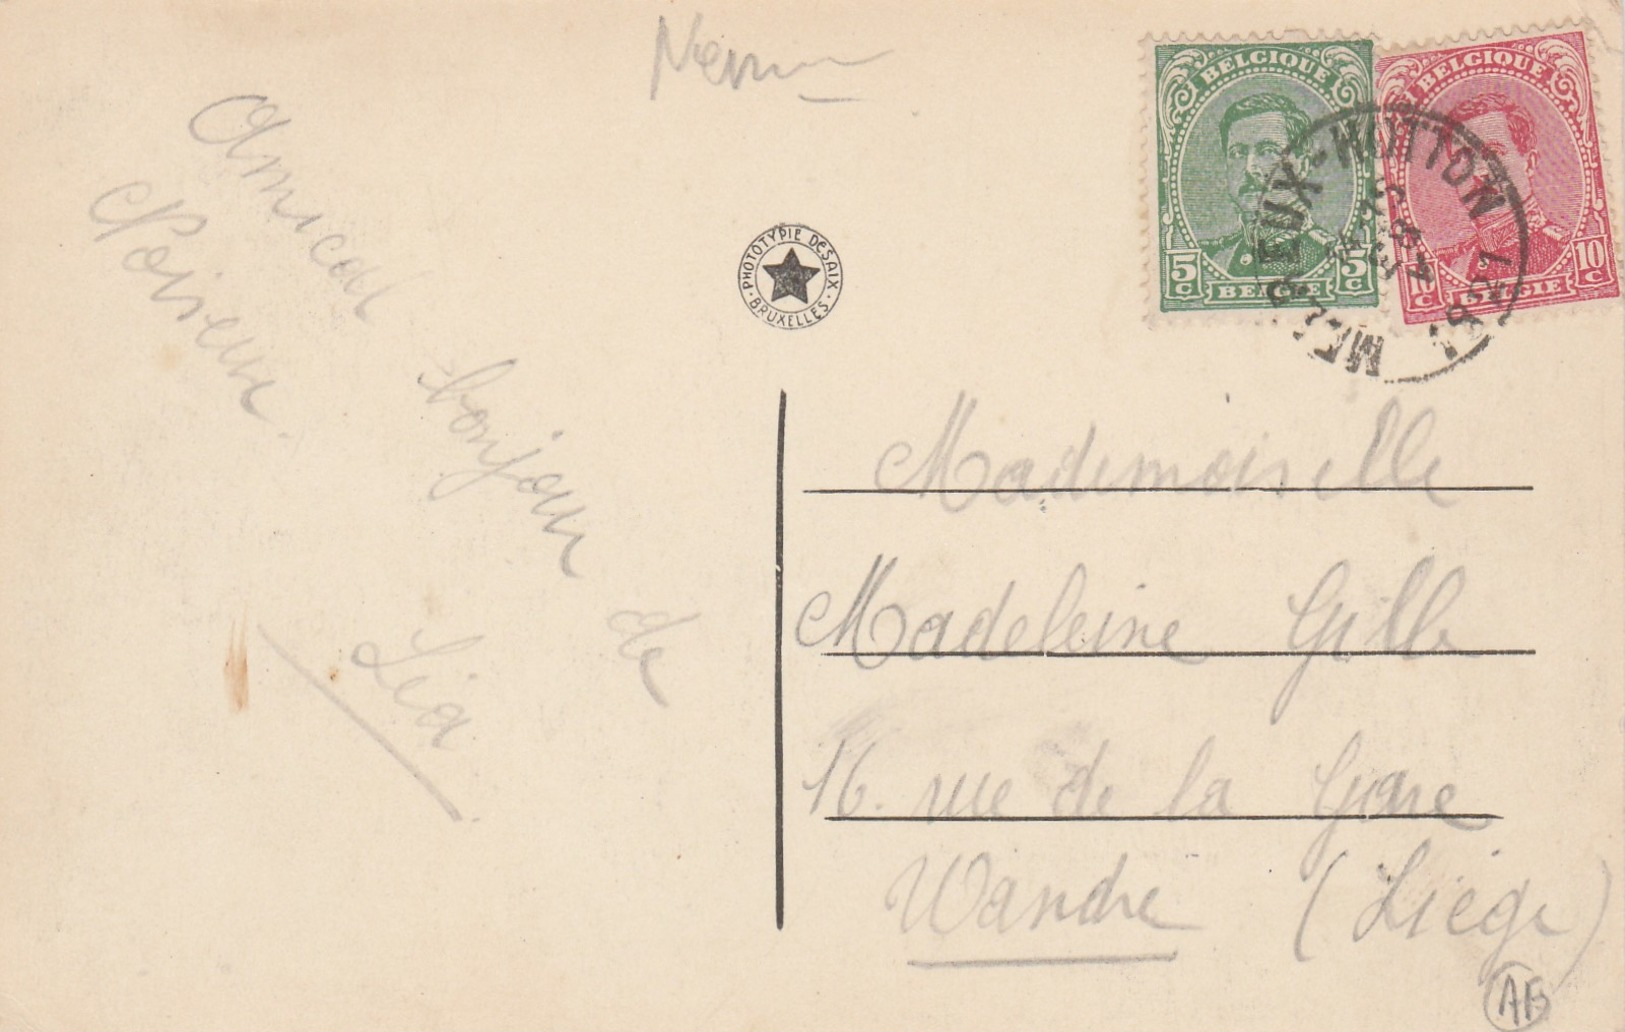 Amical
bonjour
de
Léa
PHOTOTYPIE DESAIX
BRUXELLES
BELGIQUE
5 C 5 C
BELGIË
BELGIQUE
10 C
BELGIE
MELREUX-HOTTON
1921
Mademoiselle
Madeleine Gille
16. rue de la Gare
Wandre (Liège)
AB